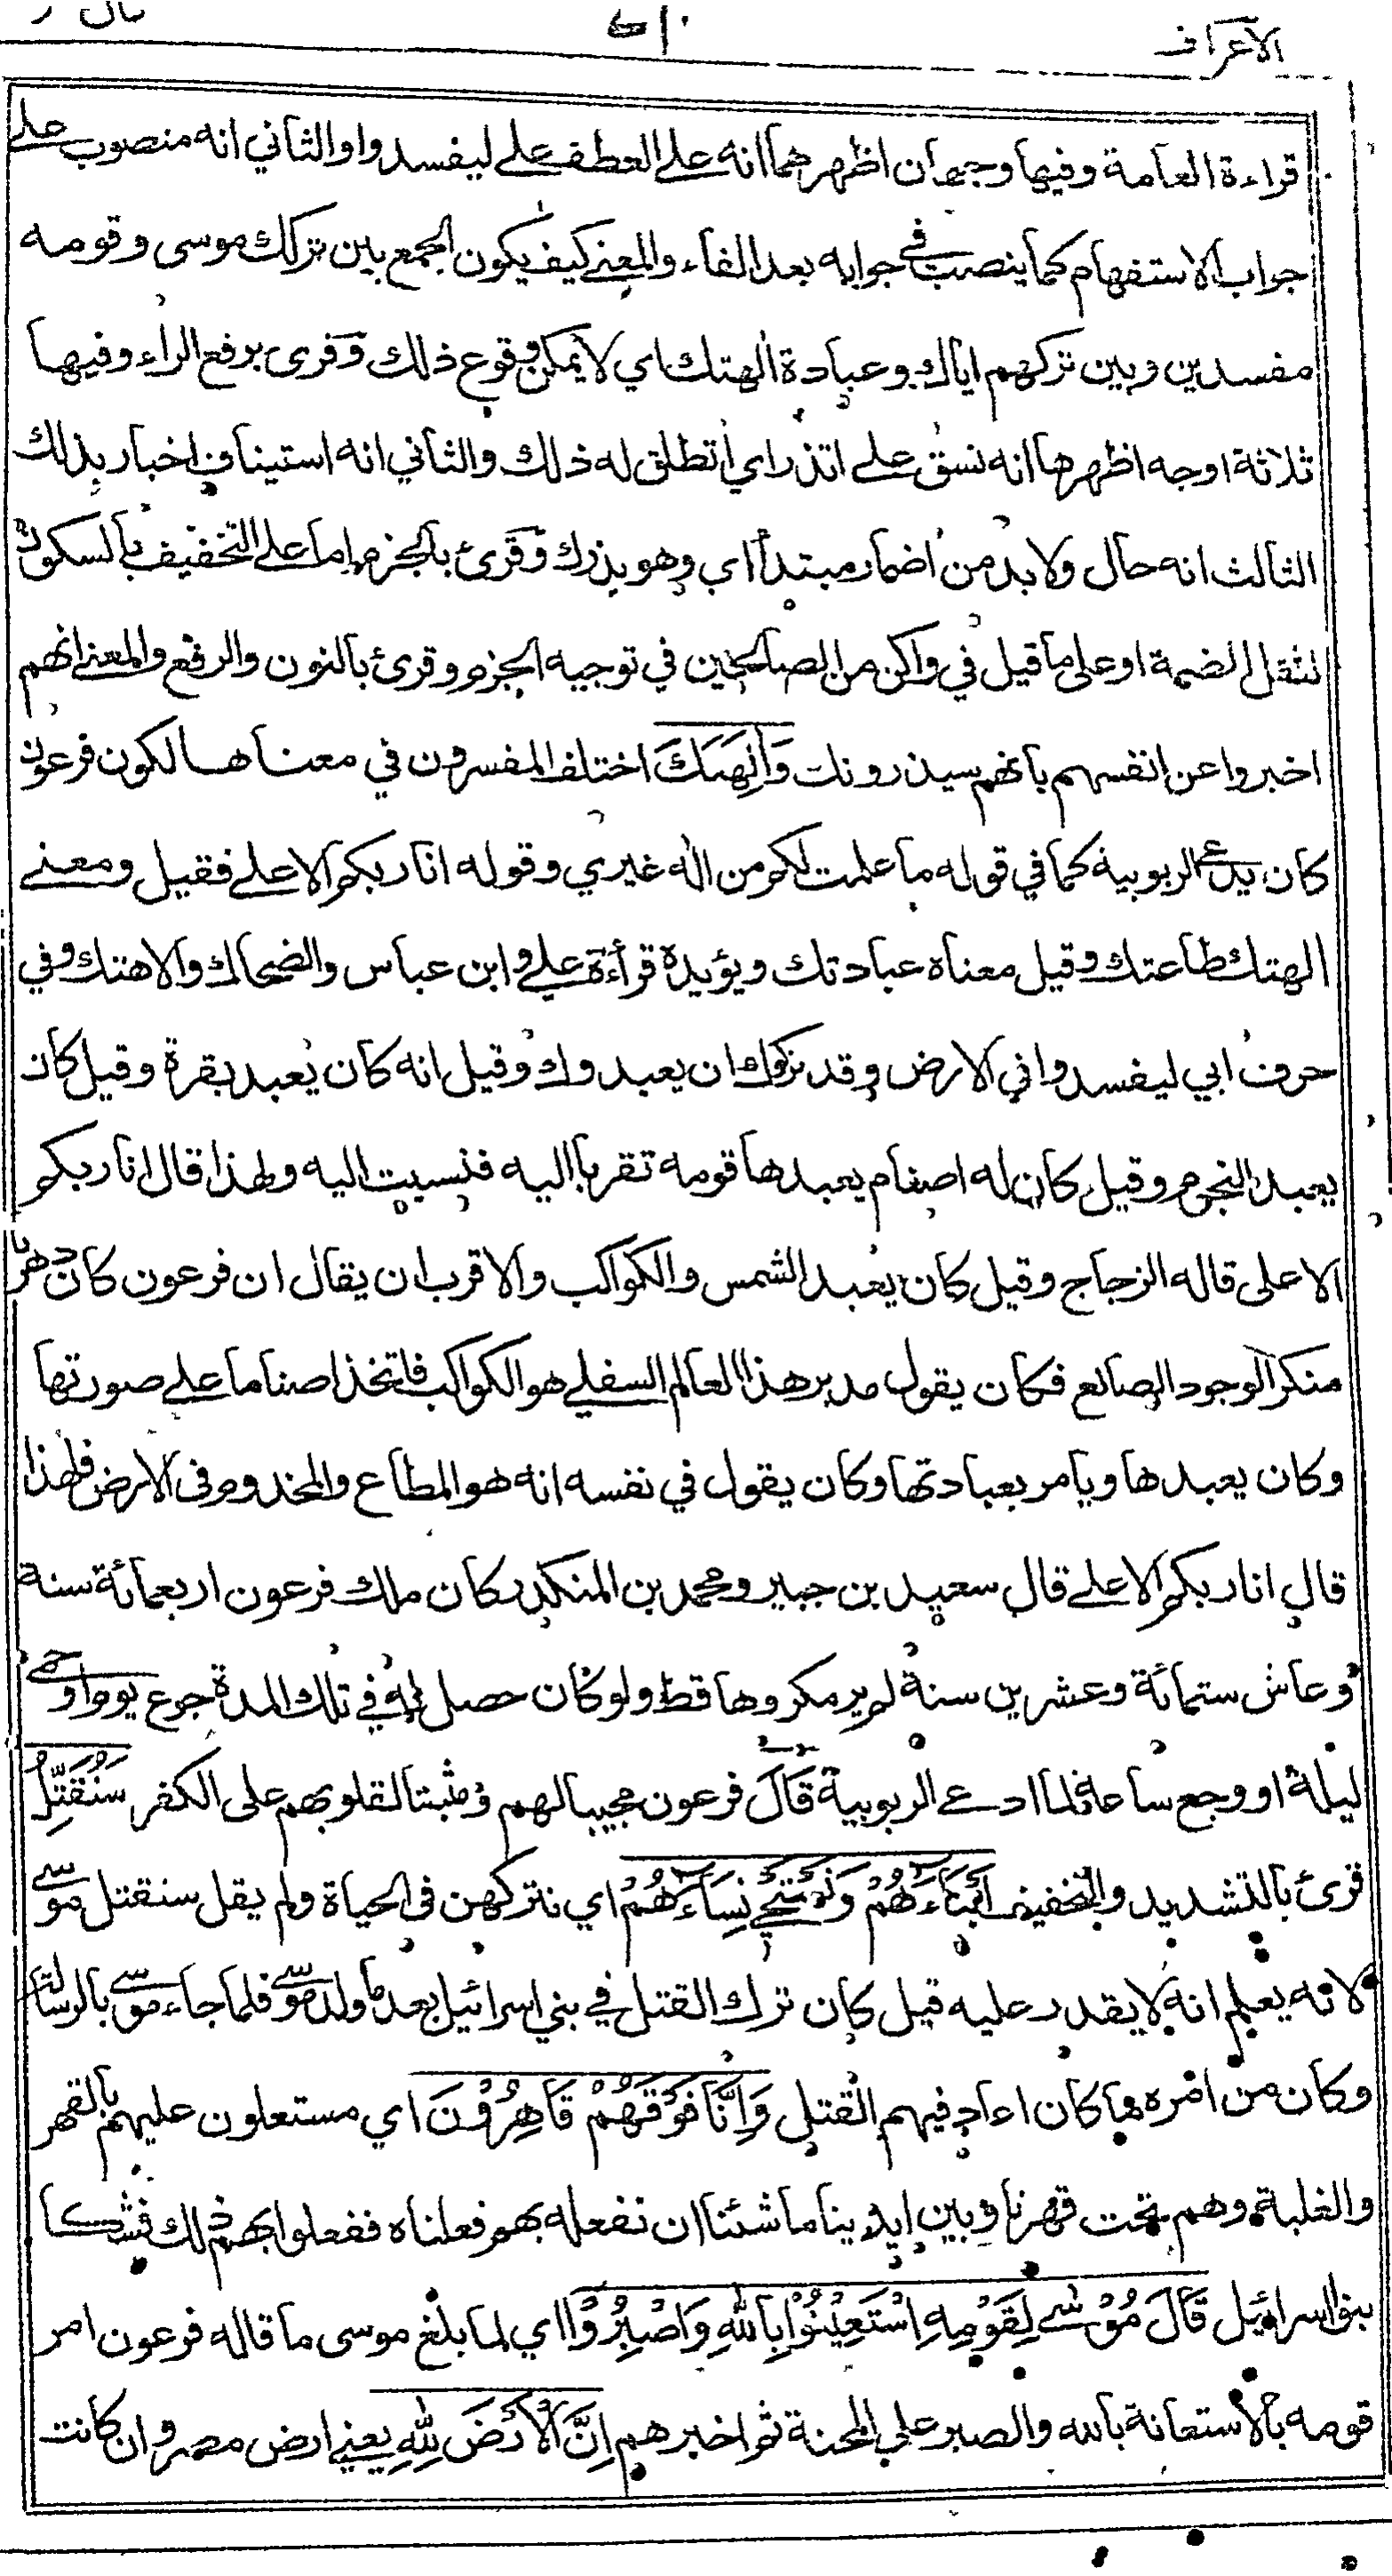 الاعراف
قراءة العامة وفيها وجهان اظهرهما انه على العطف على ليفسدوا والثاني انه منصوب على
جواب الاستفهام كما ينصب في جوابه بعد الفاء والمعنى كيف يكون الجمع بين تركك موسى وقومه
مفسدين وبين تركهم اياك وعبادة الهتك اي لا يمكن وقوع ذلك وقرى برفع الراء وفيها
ثلاثة اوجه اظهرها انه نسق على اتذر اي اتطلق له ذلك والثاني انه استيناف اخبار بذلك
الثالث انه حال ولا بد من اضمار مبتدأ اي وهو يذرك وقرئ بالجزم اما على التخفيف بالسكون
لثقل الضمة او على ما قيل في واكن من الصالحين في توجيه الجزم وقرئ بالنون والرفع والمعنى انهم
اخبروا عن انفسهم بانهم سيذرونك وَآلِهَتَكَ اختلف المفسرون في معناها لكون فرعون
كان يدعي الربوبية كما في قوله ما علمت لكم من اله غيري وقوله انا ربكم الاعلى فقيل ومعنى
الهتك طاعتك وقيل معناه عبادتك ويؤيده قرأءة علي وابن عباس والضحاك والاهتك وفي
حرف ابي ليفسدوا في الارض وقد تركوك ان يعبدوك وقيل انه كان يعبد بقرة وقيل كان
يعبد النجوم وقيل كان له اصنام يعبدها قومه تقربا اليه فنسبت اليه ولهذا قال انا ربكم
الاعلى قاله الزجاج وقيل كان يعبد الشمس والكواكب والاقرب ان يقال ان فرعون كان دهريا
منكرا لوجود الصانع فكان يقول مدبر هذا العالم السفلي هو الكواكب فاتخذ اصناما على صورتها
وكان يعبدها ويامر بعبادتها وكان يقول في نفسه انه هو المطاع والمخدوم في الارض فلهذا
قال انا ربكم الاعلى قال سعيد بن جبير ومحمد بن المنكدر كان ملك فرعون اربعمائة سنة
وعاش ستمائة وعشرين سنة لم ير مكروها قط ولو كان حصل له في تلك المدة جوع يوم او حمى
ليلة او وجع ساعة لما ادعى الربوبية قَالَ فرعون مجيبا لهم ومثبتا لقلوبهم على الكفر سَنُقَتِّلُ
قرئ بالتشديد والتخفيف اَبْنَاءَهُمْ وَنَسْتَحْيِ نِسَاءَهُمْ اي نتركهن في الحياة ولم يقل سنقتل موسى
لانه يعلم انه لا يقدر عليه قيل كان ترك القتل في بني اسرائيل بعد ما ولد موسى فلما جاء موسى بالرسالة
وكان من امره ما كان اعاد فيهم القتل وَاِنَّا فَوْقَهُمْ قَاهِرُوْنَ اي مستعلون عليهم بالقهر
والغلبة وهم تحت قهرنا وبين ايدينا ما شئنا ان نفعله بهم فعلناه ففعلوا بهم ذلك فشكا
بنو اسرائيل قَالَ مُوْسٰى لِقَوْمِهِ اسْتَعِيْنُوْا بِاللهِ وَاصْبِرُوْا اي لما بلغ موسى ما قاله فرعون امر
قومه بالاستعانة بالله والصبر على المحنة ثم اخبرهم اِنَّ الْاَرْضَ لِلّٰهِ يعني ارض مصر وان كانت